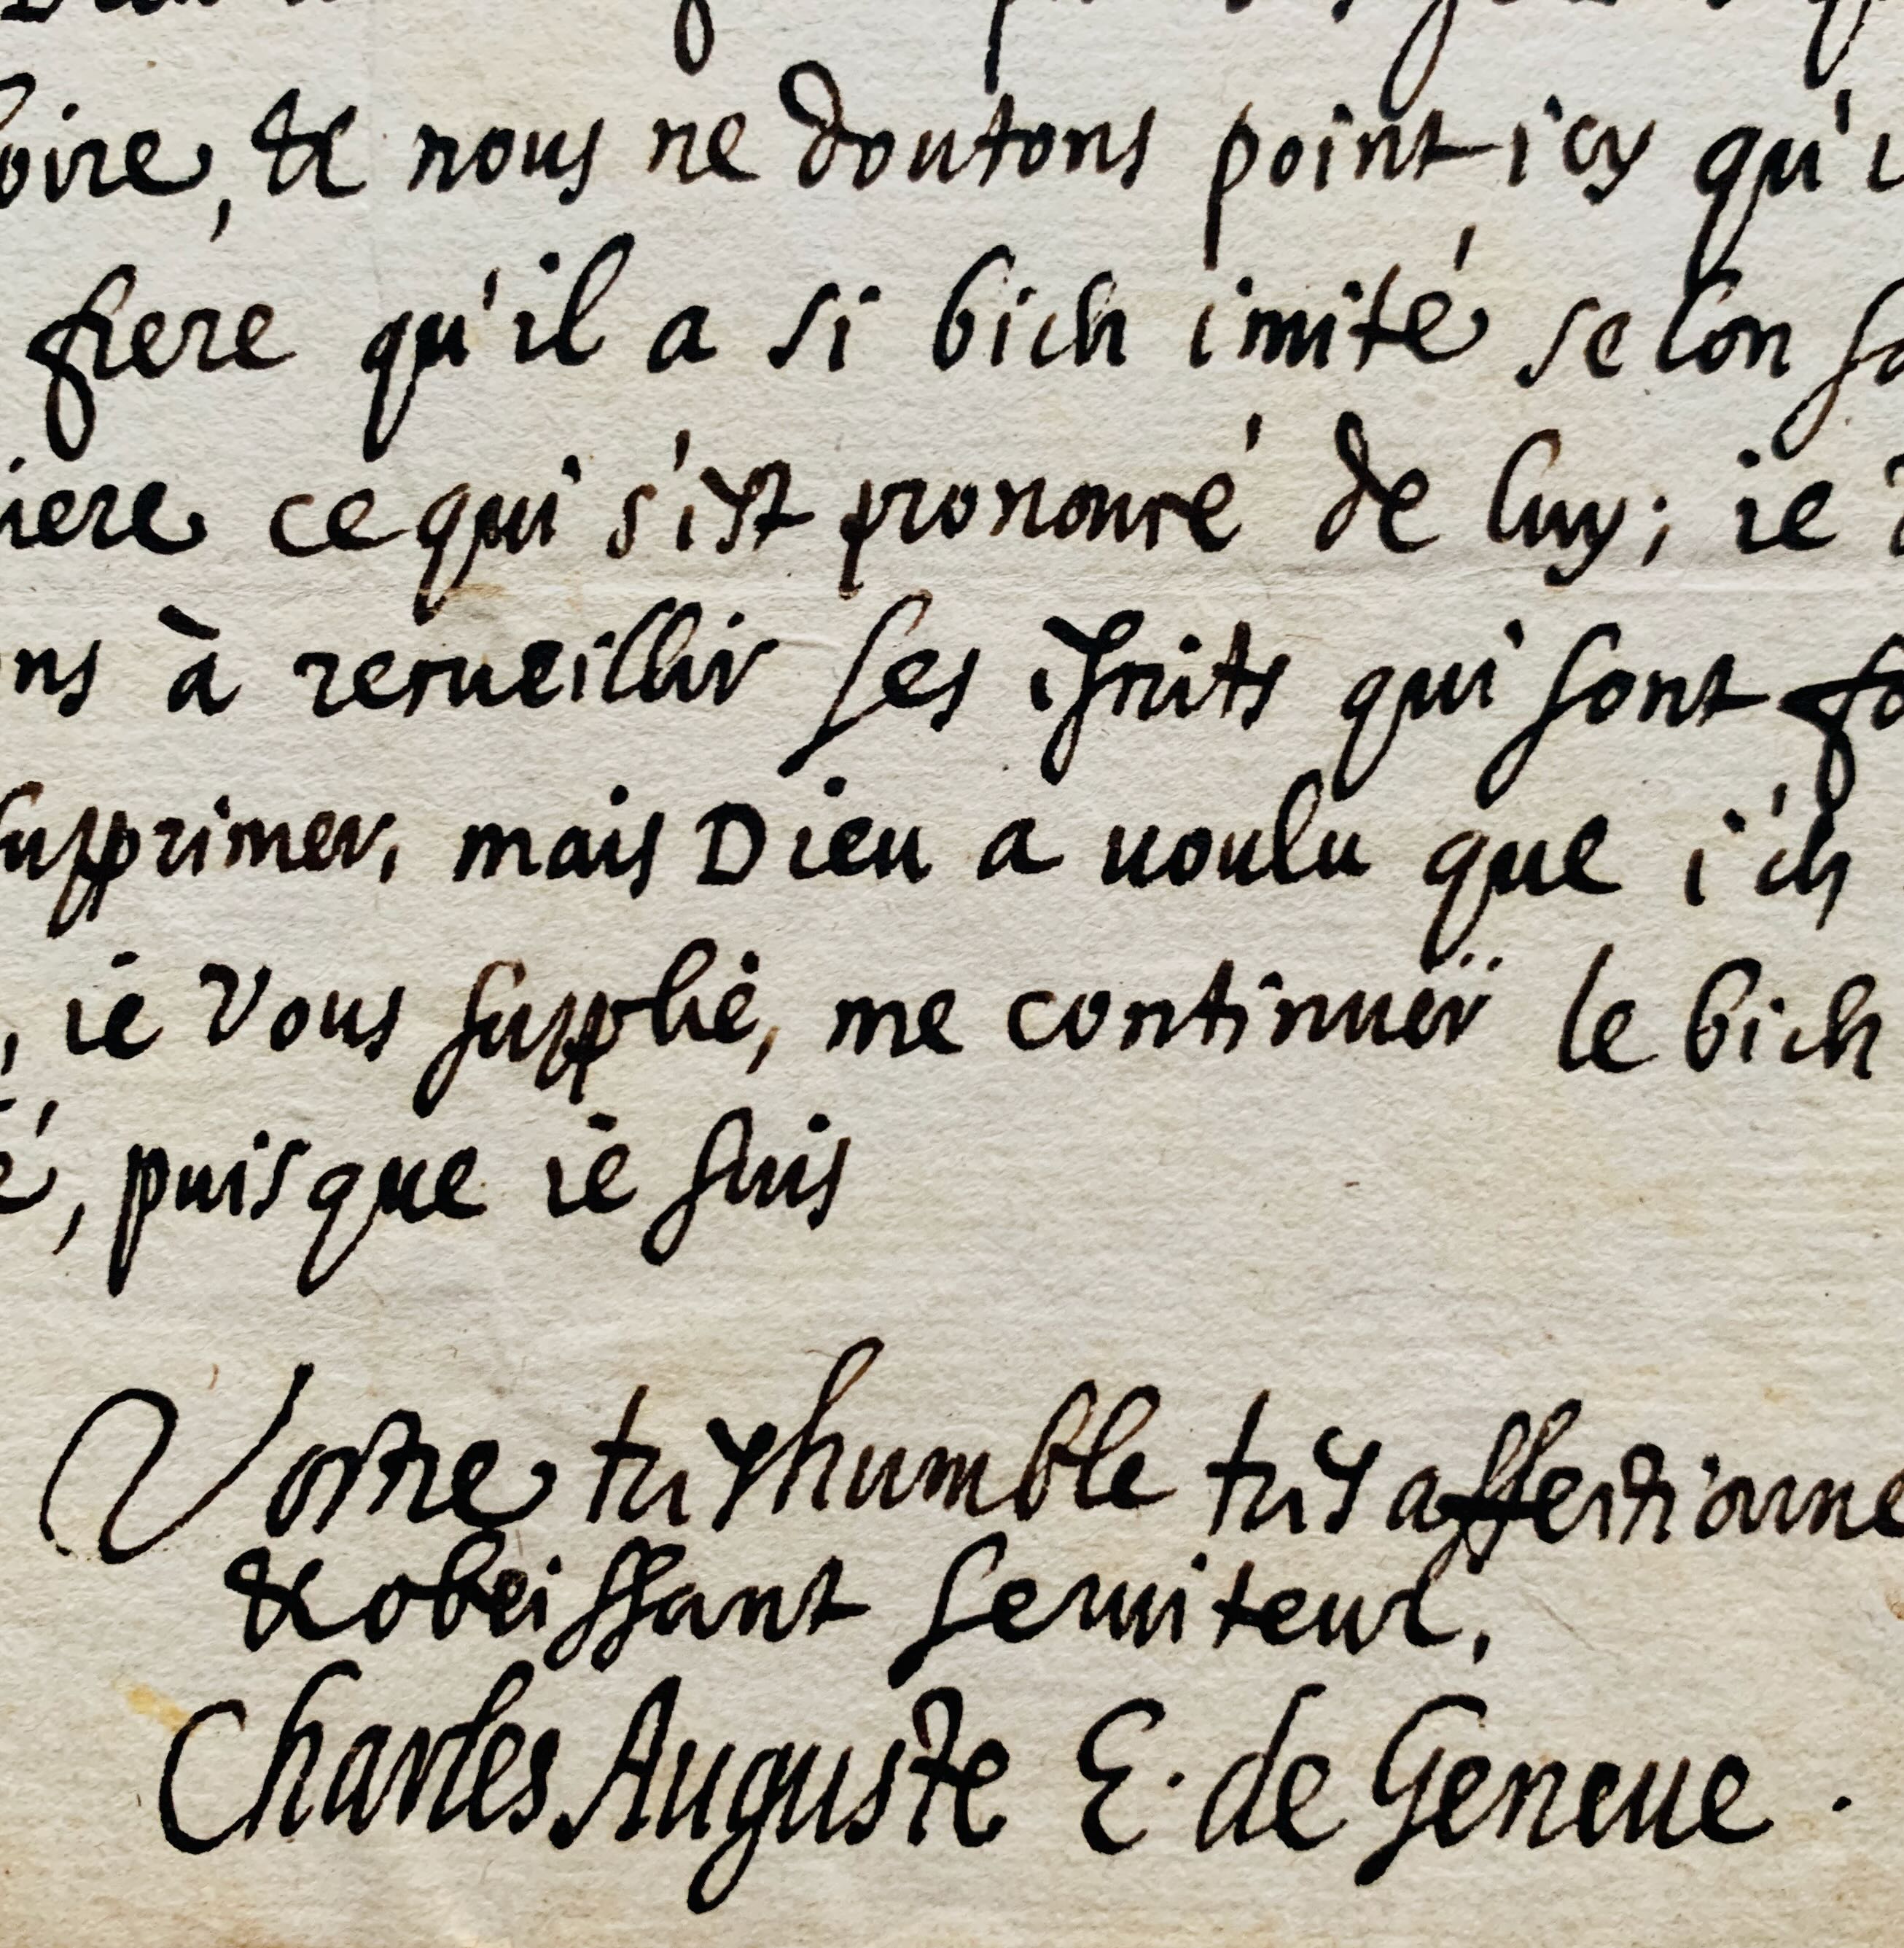 oire, & nous ne doutons point icy qu'i
frere qu'il a si bien imité selon sa
iere ce qui s'est prononcé de luy; ie
ns à recueillir ses escrits qui sont fo
supprimer, mais Dieu a uoulu que i'en
, ie vous supplie, me continuër le bien
é, puisque ie suis
Vostre treshumble tres affectionné
& obeissant seruiteur,
Charles Auguste E. de Geneue.